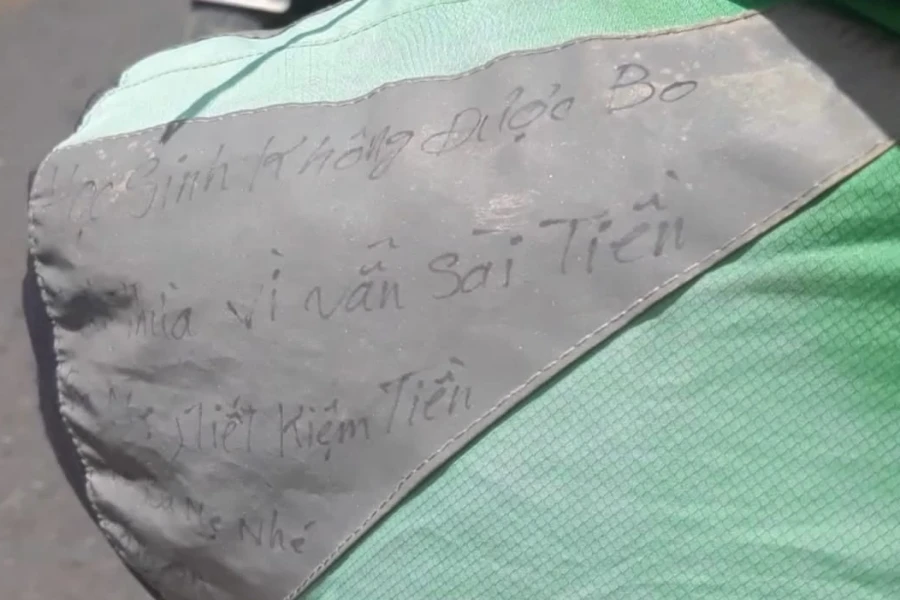 Học Sinh Không Được Bo
Thìa Vì vẫn Sài Tiền
Mẹ Tiết Kiệm Tiền
Mẹ Nhé